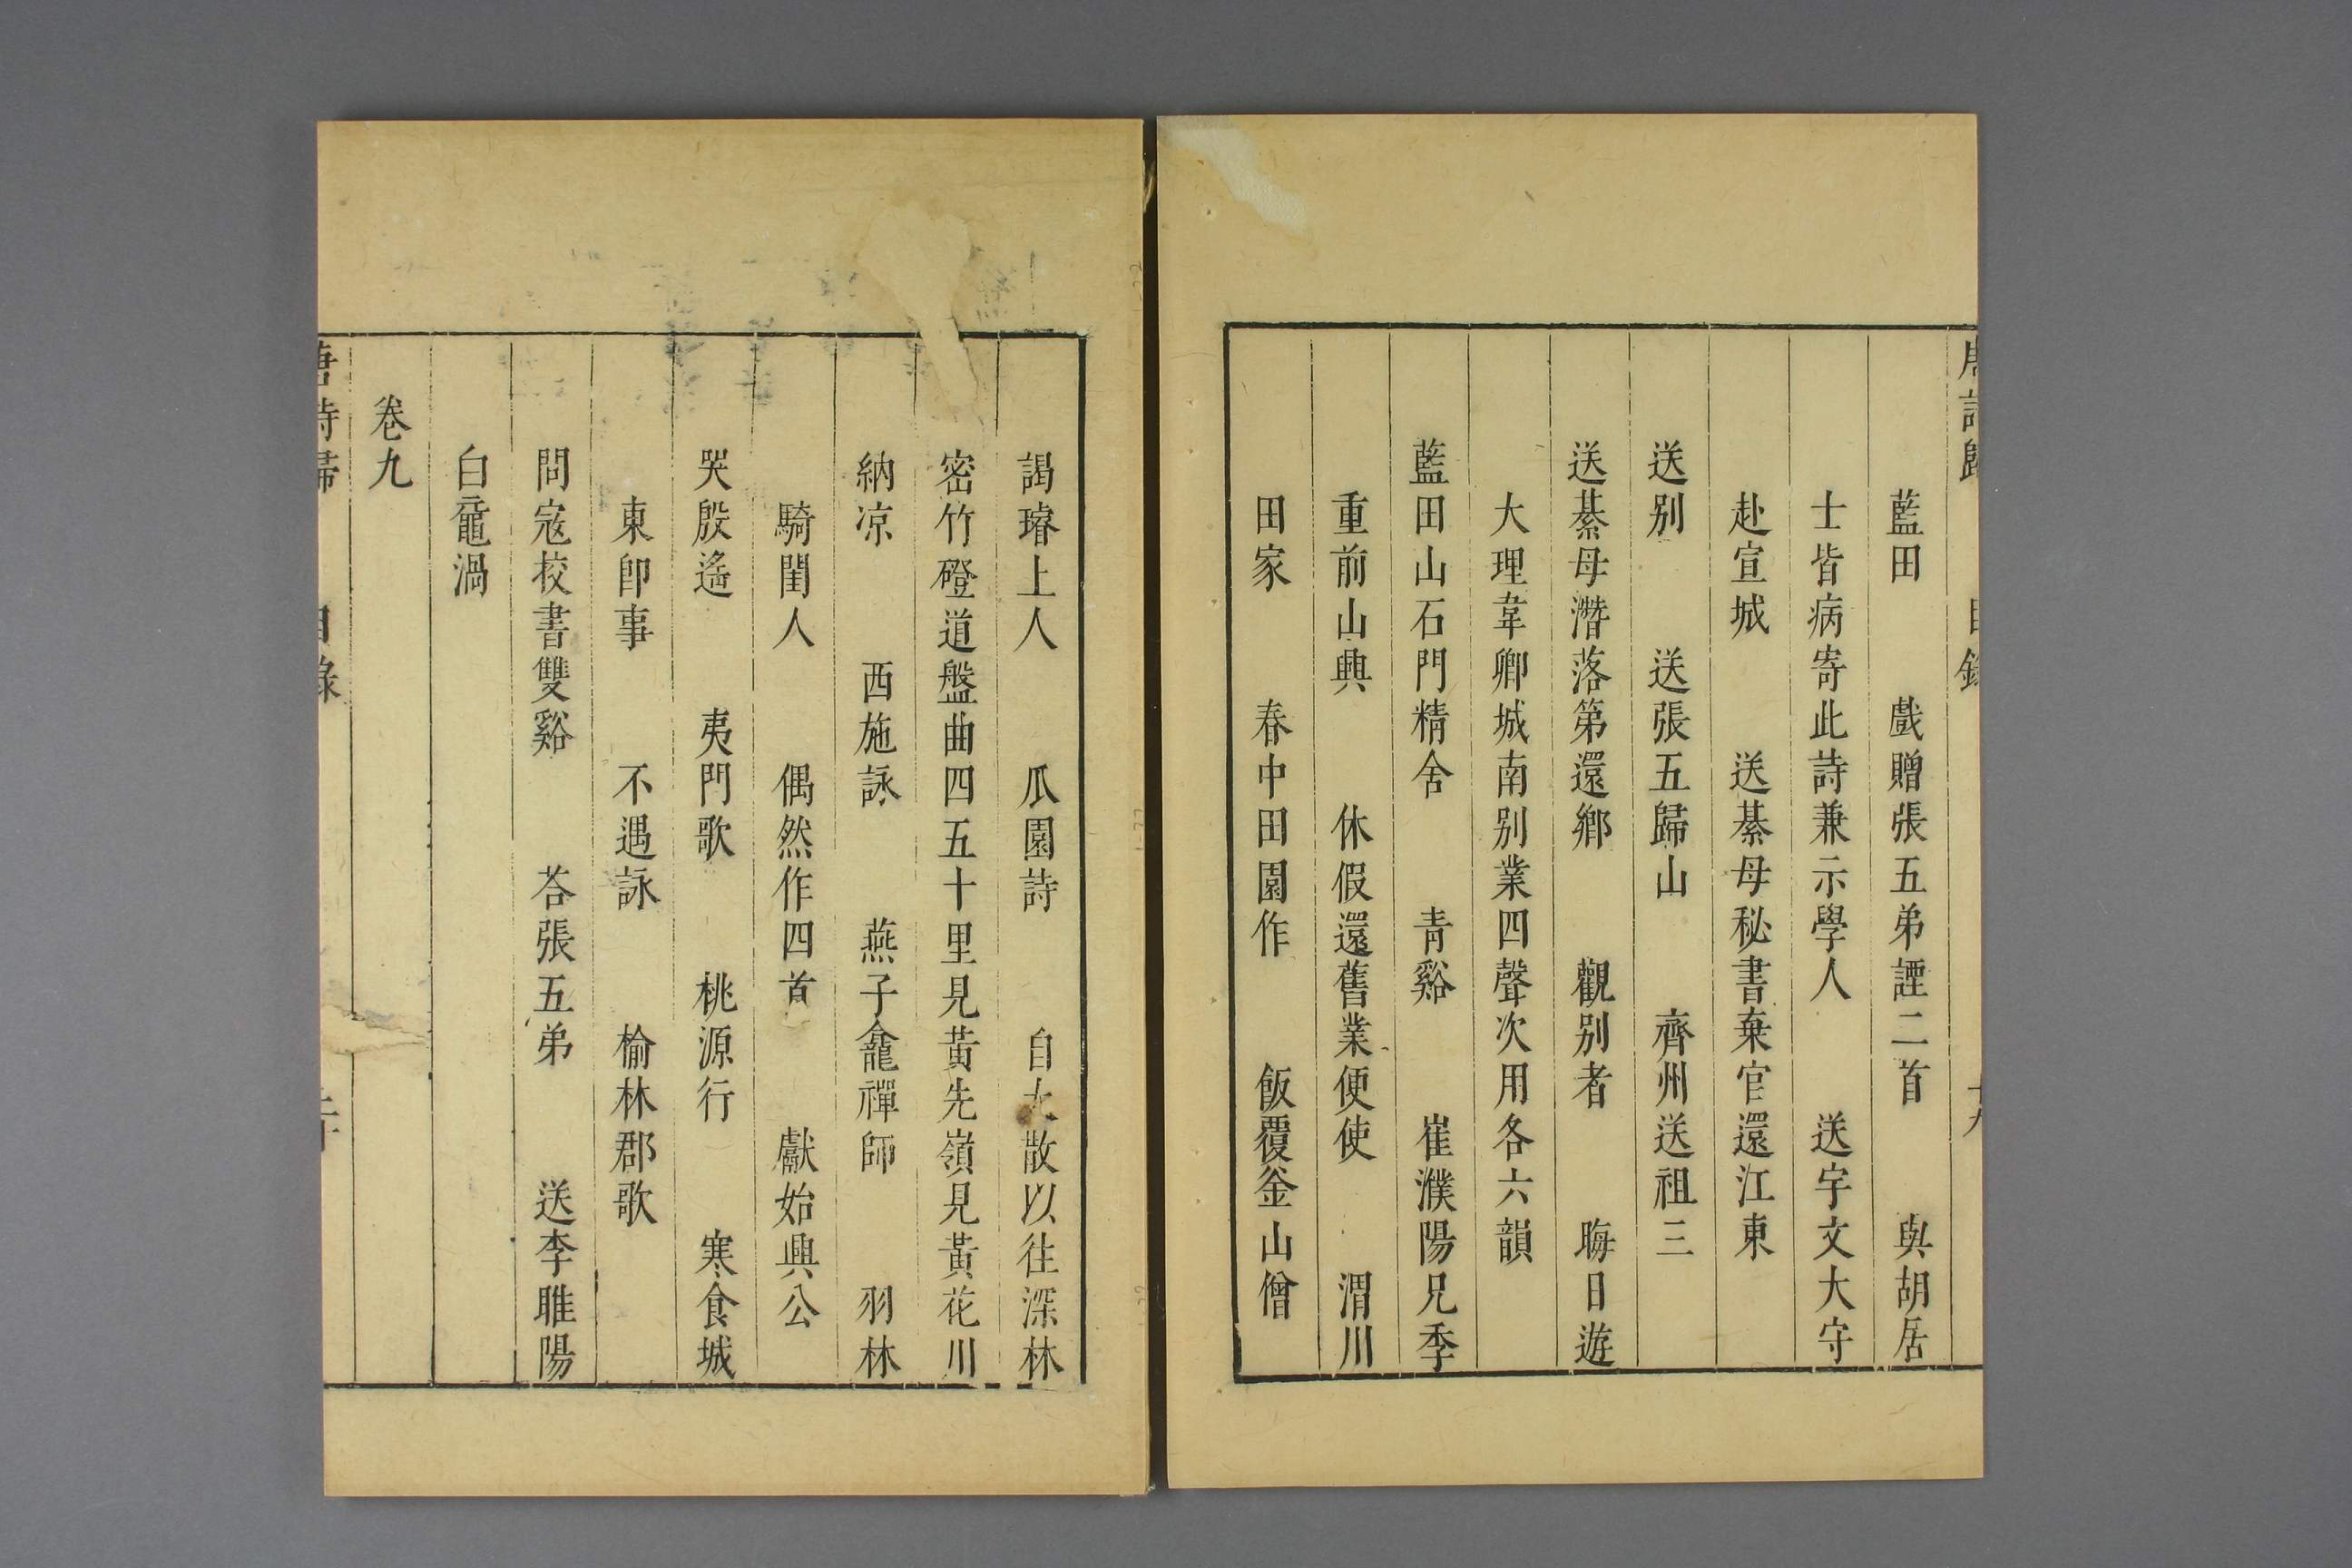 唐詩歸　目錄　十九
藍田　戲贈張五弟諲二首　與胡居
士皆病寄此詩兼示學人　送宇文大守
赴宣城　送綦母秘書棄官還江東
送别　送張五歸山　齊州送祖三
送綦母潛落第還鄉　觀别者　晦日遊
大理韋卿城南别業四聲次用各六韻
藍田山石門精舍　青谿　崔濮陽兄季
重前山興　休假還舊業便使　渭川
田家　春中田園作　飯覆釜山僧
謁璿上人　瓜園詩　自大散以往深林
密竹磴道盤曲四五十里見黃先嶺見黃花川
納凉　西施詠　燕子龕禪師　羽林
騎閨人　偶然作四首　獻始興公
哭殷遙　夷門歌　桃源行　寒食城
東卽事　不遇詠　榆林郡歌
問寇校書雙谿　荅張五弟　送李睢陽
白黿渦
卷九
唐詩歸　目錄